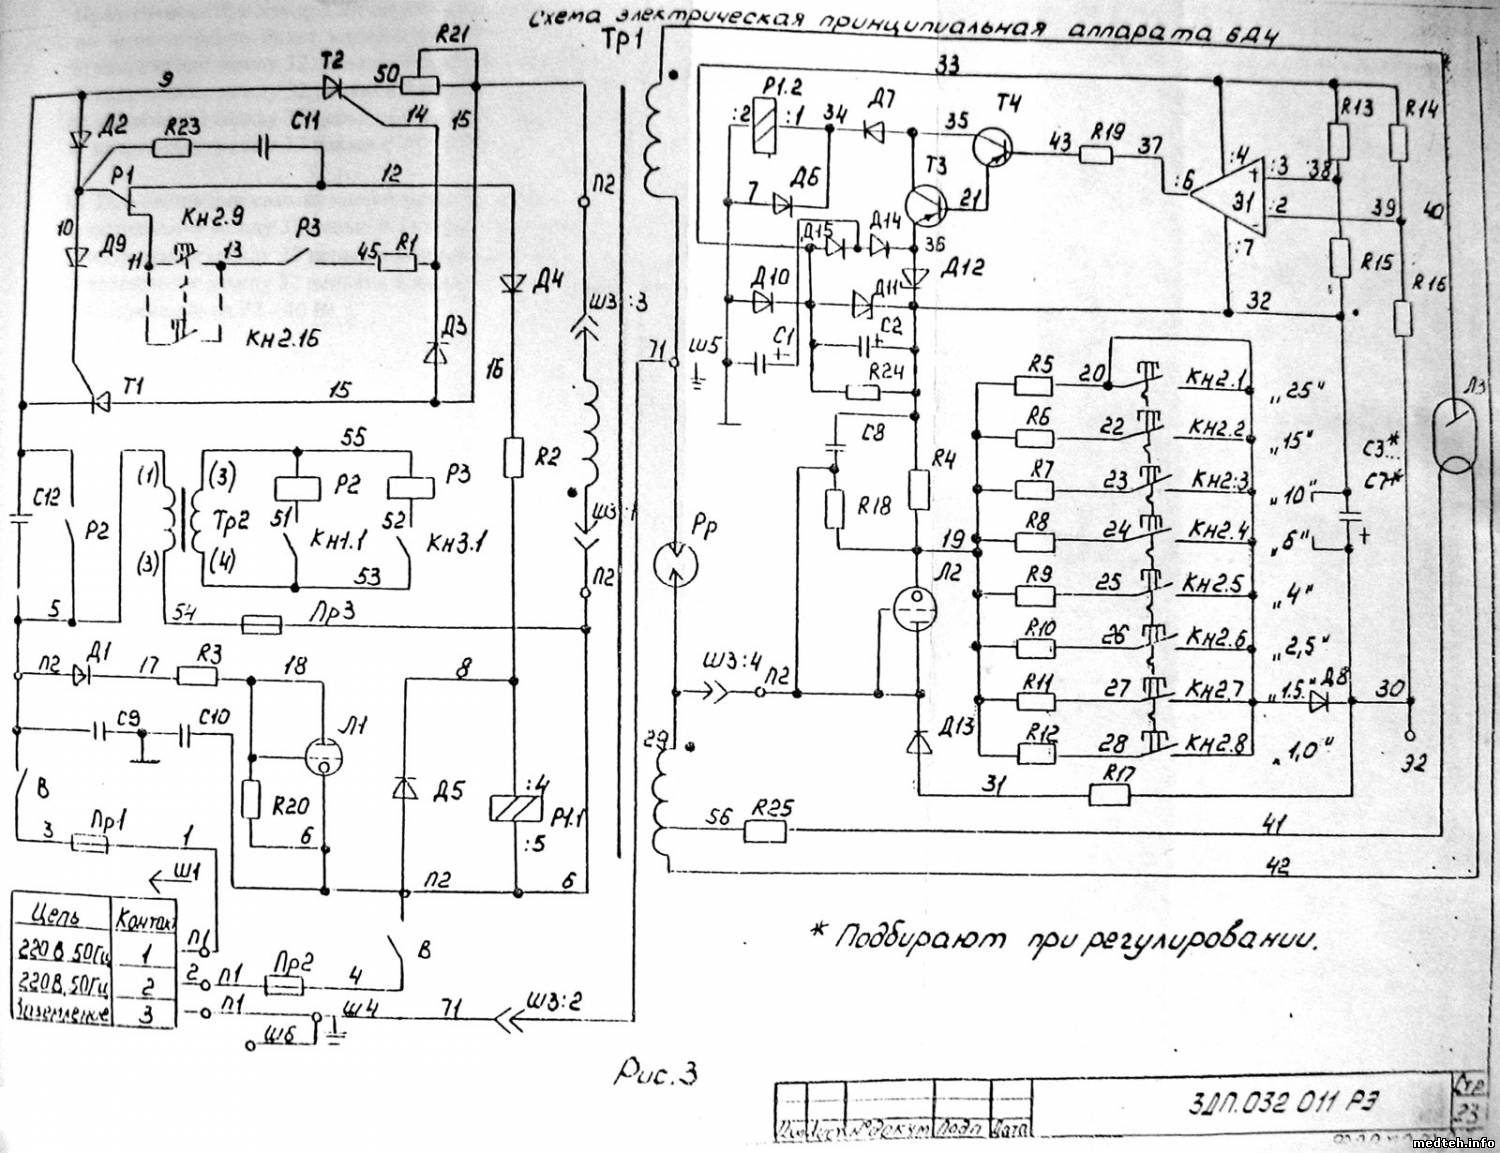 Схема электрическая принципиальная аппарата 6Д4
Тр1
R21
T2
9
50
14
15
33
P1.2
:2
:1
34
Д7
35
T4
43
R19
37
:6
:4
:3
38
R13
R14
Э1
:2
39
40
:7
Д2
R23
C11
P1
12
П2
7
Д6
T3
21
Кн2.9
P3
10
Д9
11
13
45
R1
Д15
Д14
36
R15
R16
Д4
Д10
Д11
Д12
32
Кн2.16
Д3
Ш3
:3
C1
+
C2
+
R24
71
Ш5
T1
15
16
R5
20
Кн2.1
„25"
R6
22
Кн2.2
„15"
R7
23
Кн2.3
„10"
R8
24
Кн2.4
„6"
R9
25
Кн2.5
„4"
R10
26
Кн2.6
„2,5"
R11
27
Кн2.7
„1.5"
Д8
R12
28
Кн2.8
„1,0"
Л3
C3*...
C7*
+
C8
R4
R18
19
Л2
55
(1)
(3)
Тр2
P2
P3
R2
C12
P2
51
Кн1.1
52
Кн3.1
Ш3:1
(3)
(4)
53
Рр
П2
5
54
Пр3
П2
Д1
17
R3
18
8
Ш3:4
П2
30
C9
C10
Л1
29
Д13
Э2
B
R20
Д5
:4
P1.1
:5
31
R17
56
R25
41
3
Пр1
1
6
Ш1
П2
6
42
Цепь
Контакт
220 В 50Гц
1
П1
220В, 50Гц
2
2
П1
Пр2
4
B
Заземление
3
П1
Ш4
71
Ш3:2
Ш6
* Подбирают при регулировании.
Рис.3
3ДП.032 011 РЭ
Стр
23
№докум
Подп
Дата
medteh.info